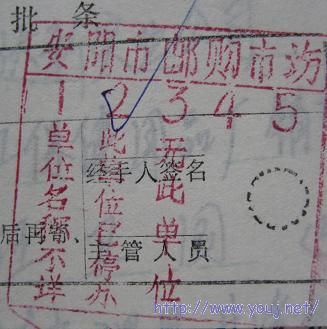 批 条
安阳市邮购市访
1 2 3 4 5
单位名称不详
此单位已停办
无此单位
经手人签名
后再寄、
主管人员
http://www.youj.net/